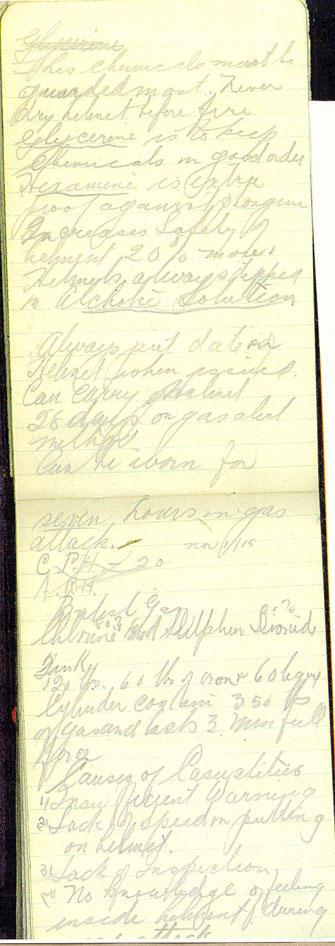 Glycerine
This chemicals must be
guarded most. Never
dry helmet before fire
Glycerine is to keep
Chemicals in good order
Hexamine is extra
proof against Phosgene
Increases Safety of
helmet 20% more.
Helmets always dipped
in Alcholic Solution
Always put date on
Helmet when issued.
Can carry helmet
28 days on gas alert
method
Can be worn for
seven hours in gas
attack. Nov /15
C P.H. 20
British Gas
Chlorine and Sulpher Dioxid
60 lbs of iron 60 lbs gas
Cylinder contain 350 lbs
of gas and lasts 3 min full
force
Causes of Casualities
1) Insufficient Warning
2) Lack of speed in putting
on helmet.
3) Lack of Inspection
4) No knowledge of feeling
inside helmet during
attack